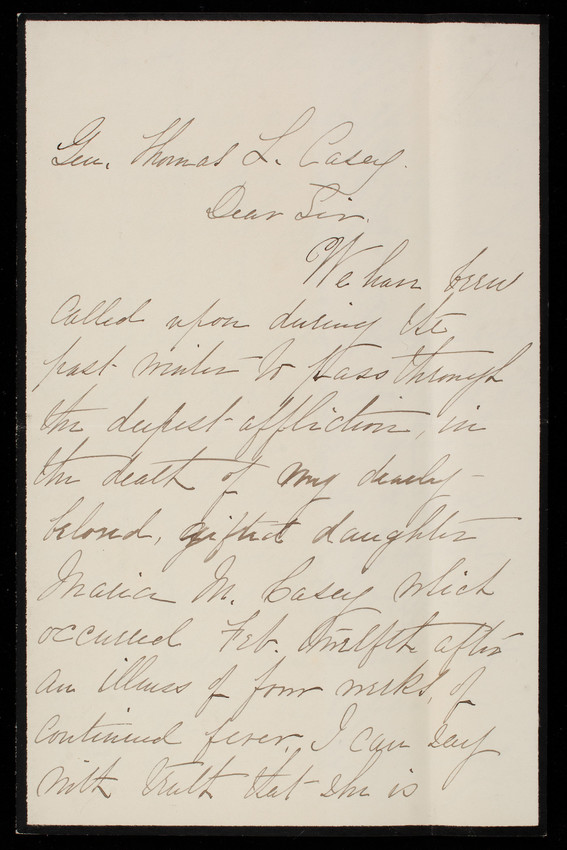 Gen. Thomas L. Casey.
Dear Sir.
We have been
called upon during the
past winter to pass through
the deepest affliction, in
the death of my dearly
beloved, gifted daughter
Maria M. Casey which
occurred Feb. twelfth after
an illness of four weeks, of
continued fever. I can say
with truth that she is